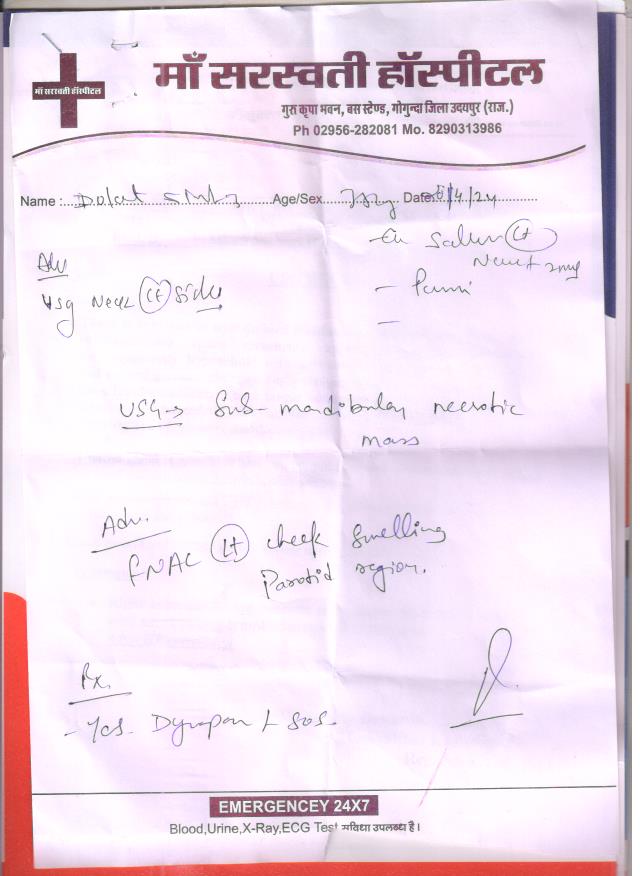 माँ सरस्वती हॉस्पीटल
माँ सरस्वती हॉस्पीटल
गुरु कृपा भवन, बस स्टेण्ड, गोगुन्दा जिला उदयपुर (राज.)
Ph 02956-282081 Mo. 8290313986
Name :.... ....Age/Sex.... ....Date: /4/24
Adv
Usg Neck Lt side
Lt
USG→ Sub-mandibular necrotic
mass
Adv.
FNAC Lt cheek swelling
Parotid region.
Rx.
SOS.
EMERGENCEY 24X7
Blood,Urine,X-Ray,ECG Test सुविधा उपलब्ध है।